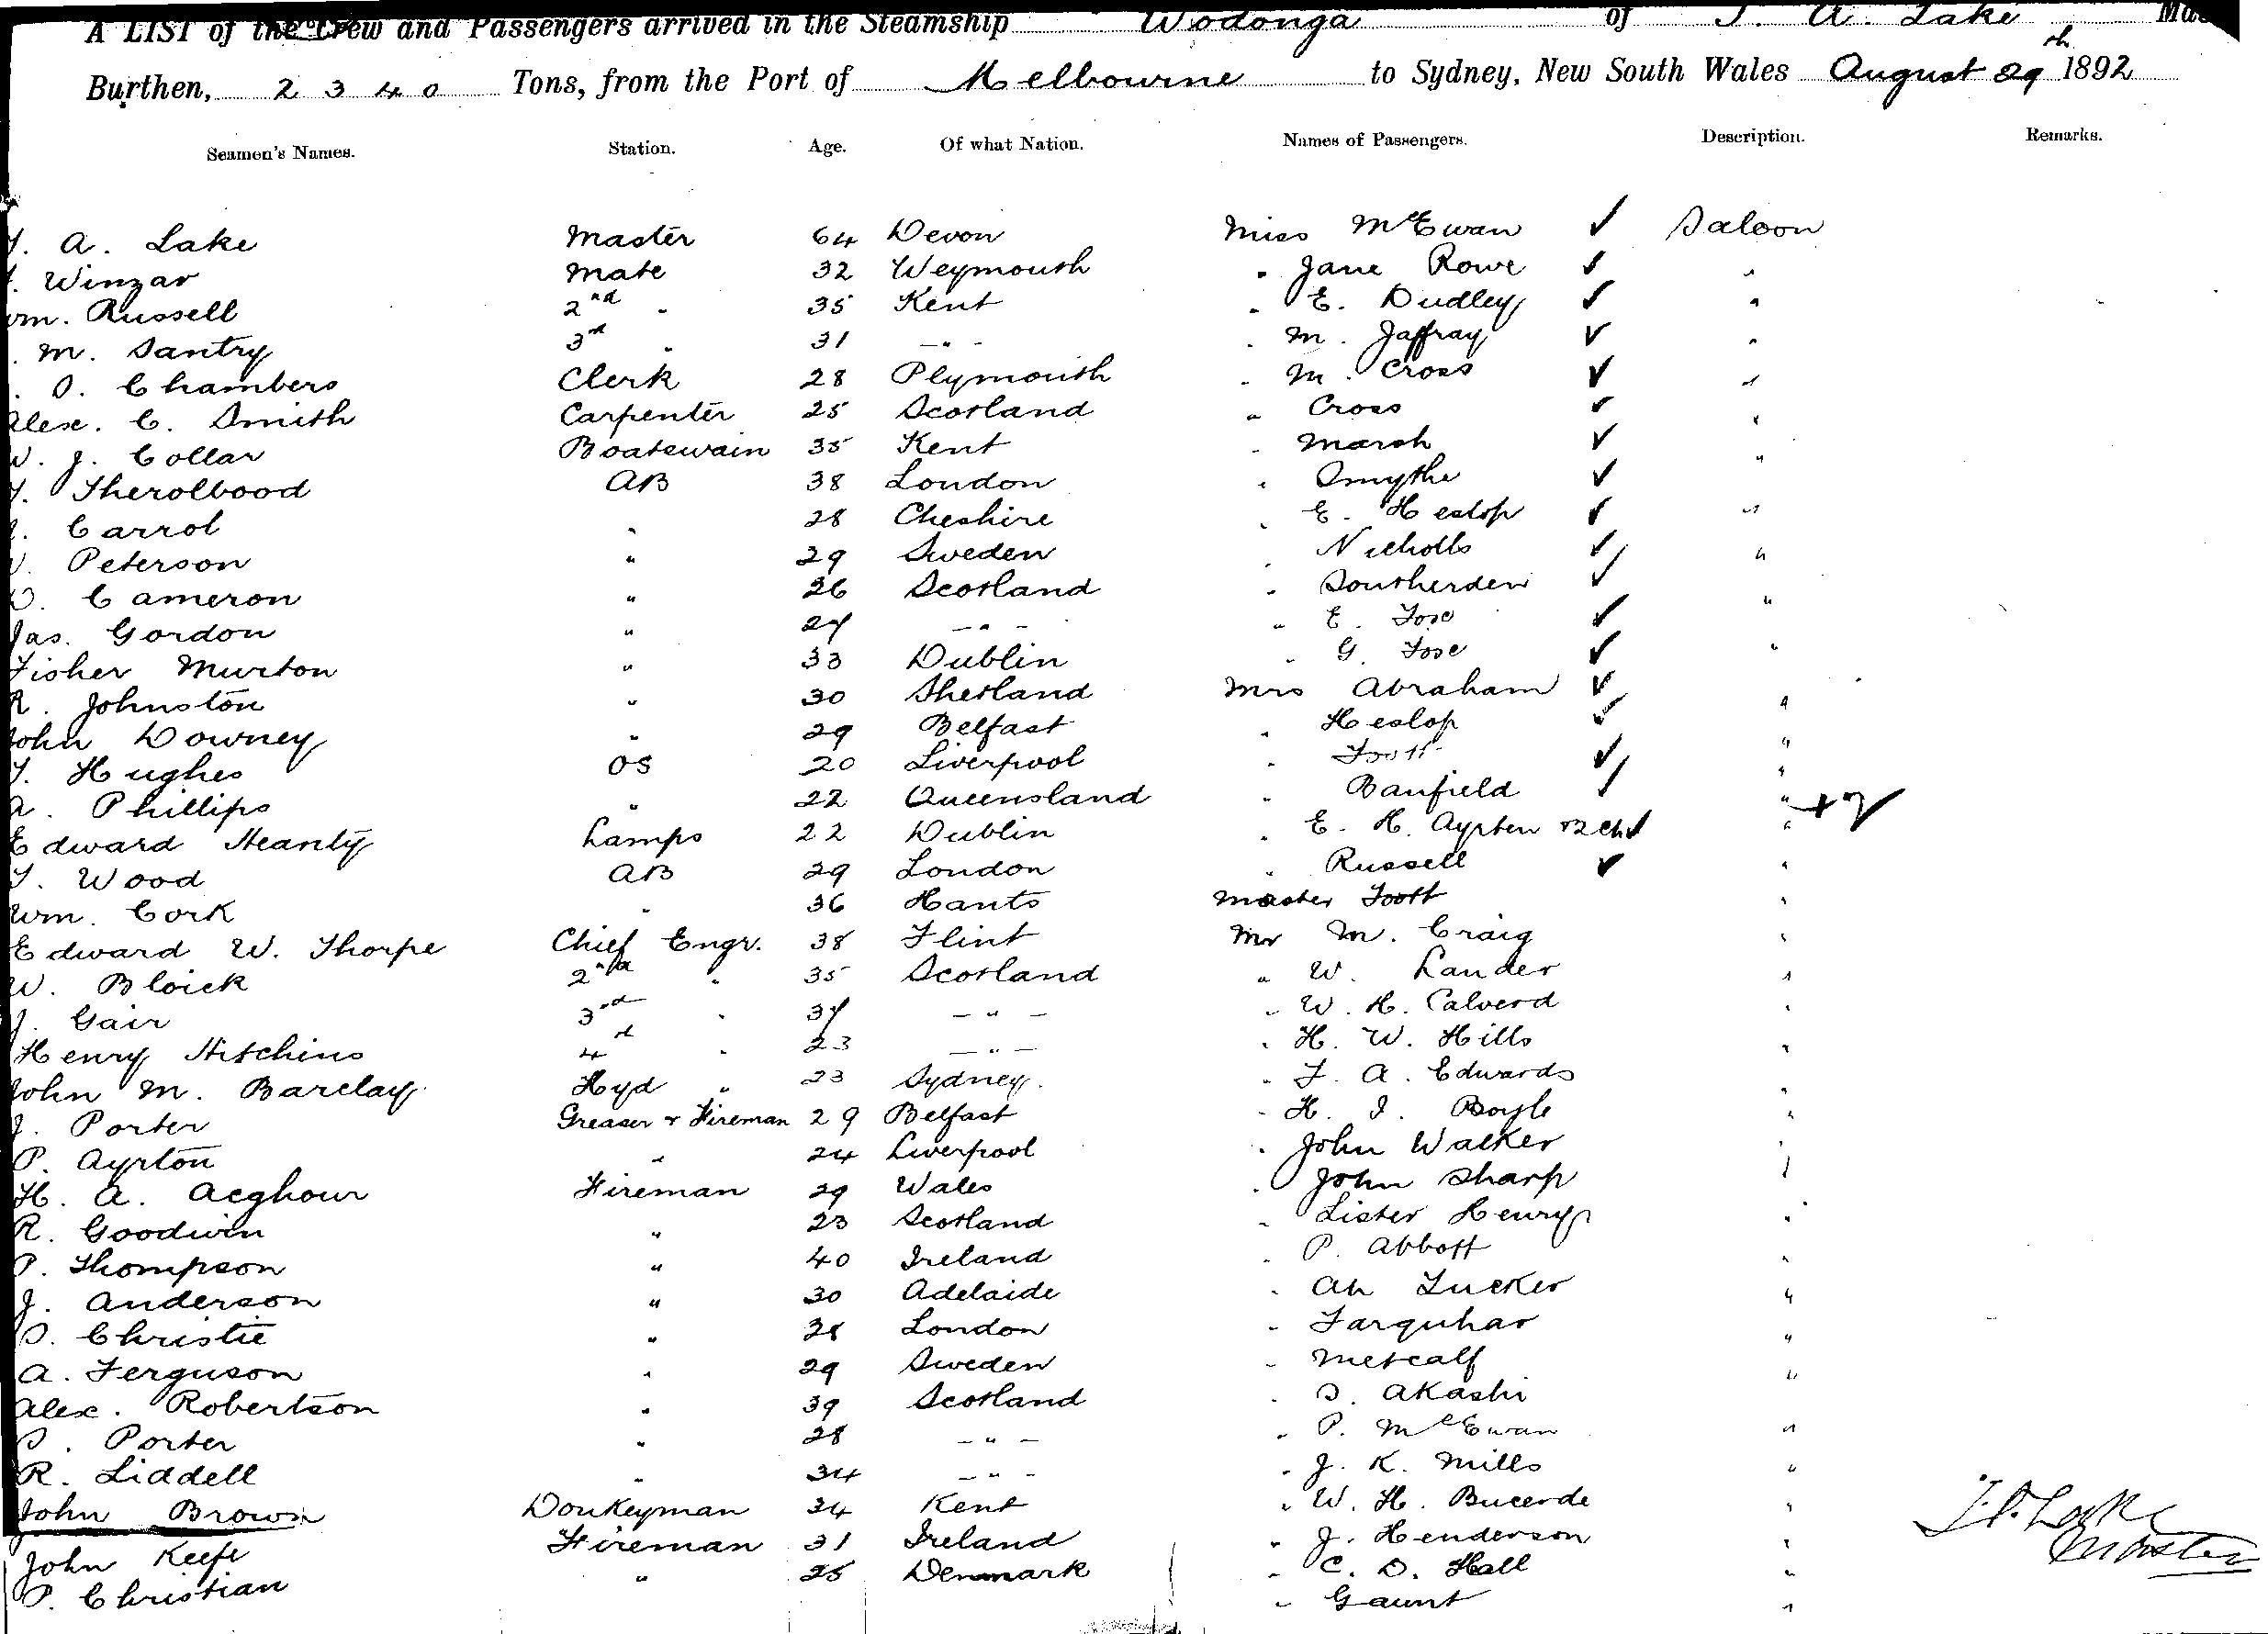 A LIST of the Crew and Passengers arrived in the Steamship Wodonga of T. A. Lake
Burthen, 2340 Tons, from the Port of Melbourne to Sydney, New South Wales August 29th 1892
Seamen's Names. Station. Age. Of what Nation. Names of Passengers. Description. Remarks.
T. A. Lake Master 64 Devon Miss McEwan ✓ Saloon
Winzar Mate 32 Weymouth " Jane Rowe ✓ "
Wm. Russell 2nd " 35 Kent " E. Dudley ✓ "
M. Santry 3rd " 31 -"- " M. Jaffray ✓ "
Chambers Clerk 28 Plymouth " M. Cross ✓ "
Alex. C. Smith Carpenter 25 Scotland " Cross ✓ "
W. J. Collar Boatswain 35 Kent " Marsh ✓ "
AB 38 London " Smythe ✓
Carrol " 28 Cheshire " E. Heslop ✓ "
Peterson " 29 Sweden " Nicholls ✓ "
D. Cameron " 26 Scotland " Southerden ✓ "
Jas. Gordon " 27 -"- " E. ✓
Fisher Murton " 33 Dublin " G. ✓ "
R. Johnston " 30 Shetland Mrs Abraham ✓ "
John Downey " 29 Belfast " Heslop ✓ "
T. Hughes OS 20 Liverpool " Foott ✓ "
A. Phillips " 22 Queensland " Banfield ✓ " +2 ✓
Edward Heanly Lamps 22 Dublin " E. H. Ayrten + 2 ch ✓ "
T. Wood AB 29 London " Russell ✓ "
Wm. Cork " 36 Hants Master Foott "
Edward W. Thorpe Chief Engr. 38 Flint Mr M. Craig "
W. Bloick 2nd " 35 Scotland " W. Lander "
J. Gair 3rd " 37 -"- " W. H. Calverd "
Henry Hitchins 4 " 23 -"- " H. W. Hills "
John M. Barclay Hyd " 23 Sydney " F. A. Edwards "
J. Porter Greaser & Fireman 29 Belfast " H. I. Boyle "
P. Ayrton " 24 Liverpool " John Walker "
H. A. Acghour Fireman 29 Wales " John Sharp "
R. Goodwin " 23 Scotland " Lister Henry "
P. Thompson " 40 Ireland " P. Abbott "
J. Anderson " 30 Adelaide " Ah Tucker "
Christie " 38 London " Farquhar "
A. Ferguson " 29 Sweden " Metcalf "
Alex. Robertson " 39 Scotland " S. Akashi
Porter " 28 -"- " P. McEwan "
R. Liddell " 34 -"- " J. K. Mills "
John Brown Donkeyman 34 Kent " W. H. Bucerde "
John Keefe Fireman 31 Ireland " J. Henderson "
P. Christian " 25 Denmark " C. D. Hall "
" Gaunt "
T. A. Lake
Master